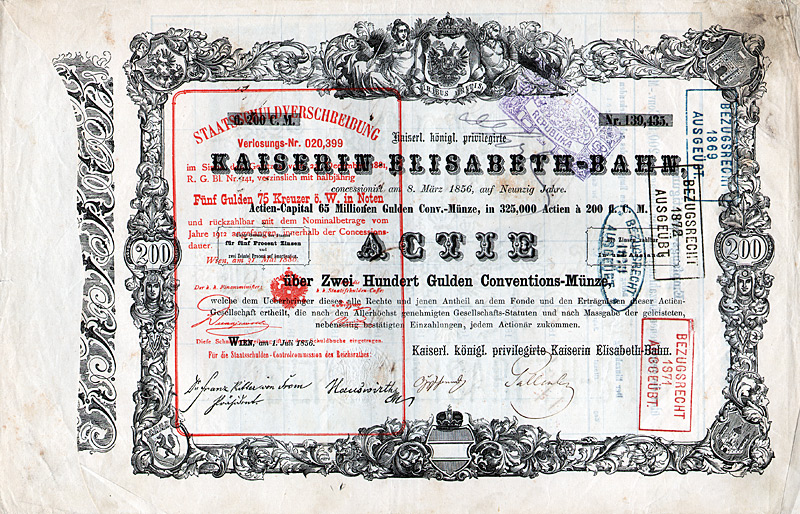 VIRIBUS UNITIS
fl. 200 C. M.
Nr. 139,435.
Kaiserl. königl. privilegirte
KAISERIN ELISABETH-BAHN.
concessionirt am 8. März 1856, auf Neunzig Jahre.
Actien-Capital 65 Millionen Gulden Conv.-Münze, in 325,000 Actien à 200 fl. C. M.
ACTIE
200
200
über Zwei Hundert Gulden Conventions-Münze,
welche dem Ueberbringer dieses alle Rechte und jenen Antheil an dem Fonde und den Erträgnissen dieser Actien-
Gesellschaft ertheilt, die nach den Allerhöchst genehmigten Gesellschafts-Statuten und nach Massgabe der geleisteten,
nebenseitig bestätigten Einzahlungen, jedem Actionär zukommen.
WIEN, am 1. Juli 1856.
Kaiserl. königl. privilegirte Kaiserin Elisabeth-Bahn.
Präsident
STAATSSCHULDVERSCHREIBUNG
Verlosungs-Nr. 020,399
R. G. Bl. Nr. 141, verzinslich mit halbjährig
Fünf Gulden 75 Kreuzer ö. W. in Noten
und rückzahlbar mit dem Nominalbetrage vom
Jahre 1912 angefangen, innerhalb der Concessions-
dauer.
für fünf Procent Zinsen
und
Der k. k. Finanzminister:
k. k. Staatsschulden-Casse
Für die Staatsschulden-Controlcommission des Reichsrathes:
BEZUGSRECHT
1869
AUSGEÜBT
BEZUGSRECHT
1872
AUSGEÜBT.
BEZUGSRECHT
AUSGEÜBT
BEZUGSRECHT
1871
AUSGEÜBT.